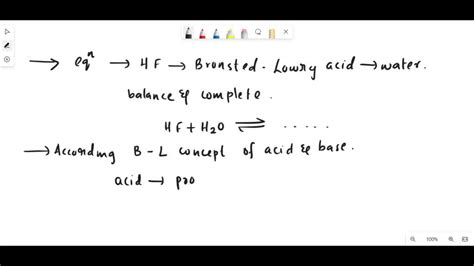 → eqⁿ → HF → Bronsted-Lowry acid → water.
balance & complete.
HF + H₂O ⇌ .....
→ According B-L concept of acid & base.
acid → pro
100%